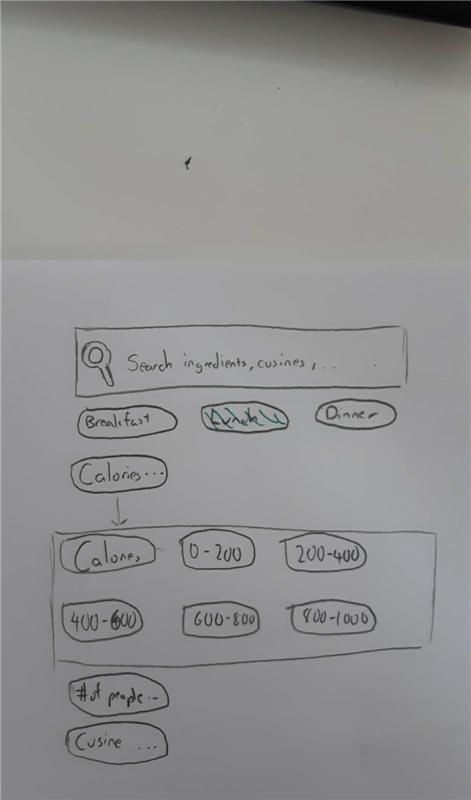 Search ingredients, cusines, ...
Breakfast Dinner
Calories...
Calories 0-200 200-400
400-600 600-800 800-1000
# of people...
Cusine ...